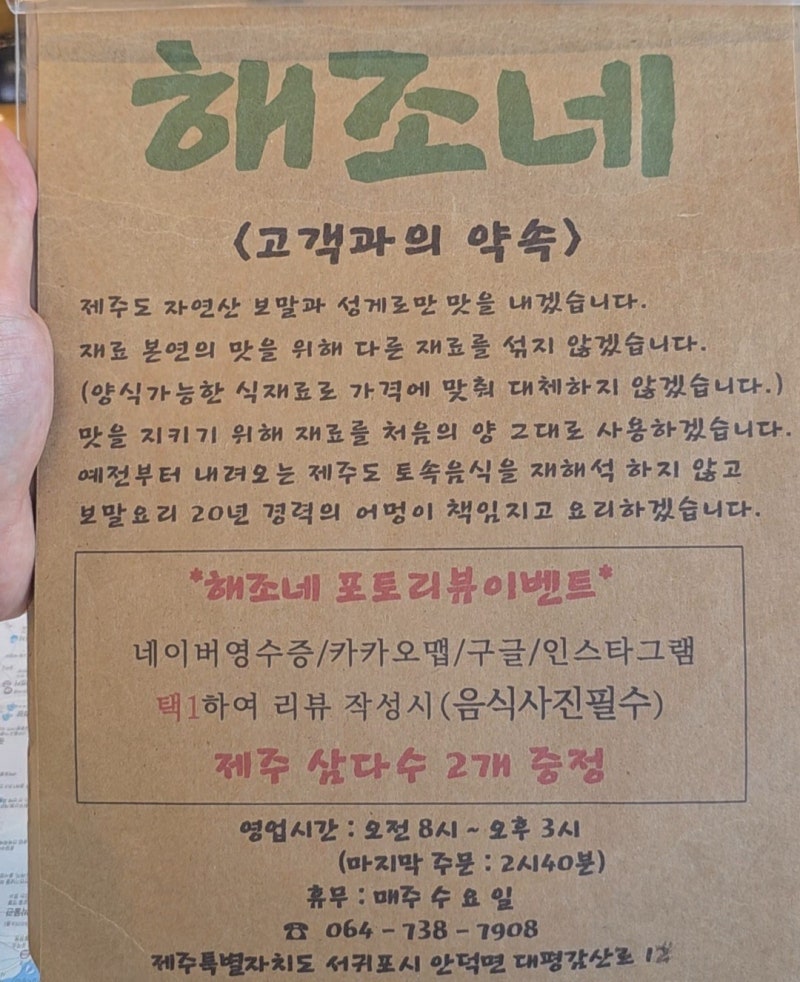 해조네
<고객과의 약속>
제주도 자연산 보말과 성게로만 맛을 내겠습니다.
재료 본연의 맛을 위해 다른 재료를 섞지 않겠습니다.
(양식가능한 식재료로 가격에 맞춰 대체하지 않겠습니다.)
맛을 지키기 위해 재료를 처음의 양 그대로 사용하겠습니다.
예전부터 내려오는 제주도 토속음식을 재해석 하지 않고
보말요리 20년 경력의 어멍이 책임지고 요리하겠습니다.
*해조네 포토리뷰이벤트*
네이버영수증/카카오맵/구글/인스타그램
택1하여 리뷰 작성시(음식사진필수)
제주 삼다수 2개 증정
영업시간 : 오전 8시 ~ 오후 3시
(마지막 주문 : 2시40분)
휴무 : 매주 수 요 일
☎ 064 - 738 - 7908
제주특별자치도 서귀포시 안덕면 대평감산로 12